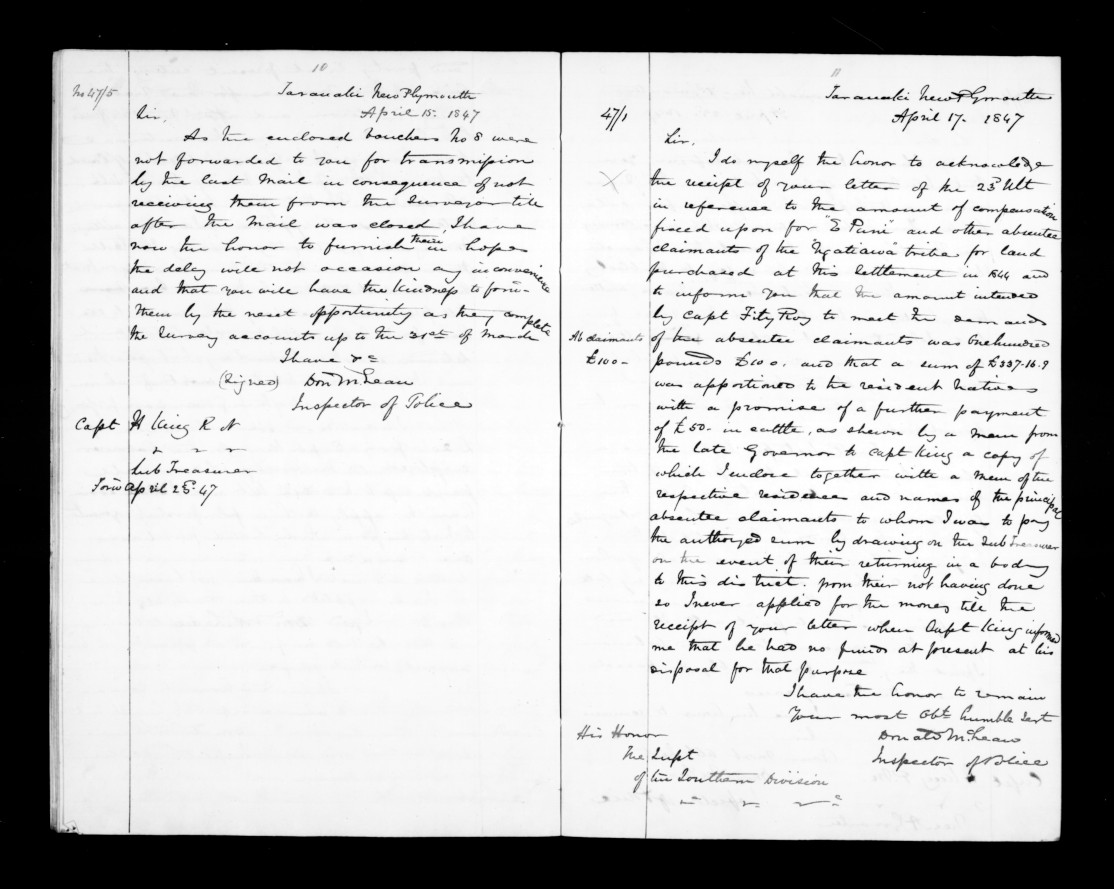 10
No 47/5
Taranaki New Plymouth
April 15. 1847
Sir.
As the enclosed vouchers No 8 were
not forwarded to you for transmission
by the last Mail in consequence of not
receiving them from the Surveyor till
after the Mail was closed, I have
now the honor to furnish them hope
the delay will not occasion any inconvenience
and that you will have the kindness to forwd-
them by the next opportunity as they complete
the Survey accounts up to the 31st of March
I have &c
(Signed) Don McLean
Inspector of Police
Capt H King R N
" " "
Sub Treasurer
Forwd April 25. 47
11
Taranaki New Plymouth
47/1
April 17. 1847
Sir.
I do myself the honor to acknowledge
the receipt of your letter of the 23rd Ult
in reference to the amount of compensation
fixed upon for "E Puni" and other absentee
claimants of the Ngatiawa tribe, for land
purchased at this settlement in 1844 and
to inform you that the amount intended
by Capt Fitz Roy to meet the demands
Ab claimants
£100-
of the absentee claimants was One hundred
pounds £100. and that a sum of £337-16.9
was apportioned to the resident Natives
with a promise of a further payment
of £50- in cattle, as shewn by a mem from
the late Governor to Capt King a copy of
which I enclose together with a mem of the
respective residence and names of the principal
absentee claimants to whom I was to pay
the authorized sum by drawing on the Sub Treasurer
on the event of their returning in a body
to this district, from their not having done
so I never applied for the money till the
receipt of your letter when Capt King informed
me that he had no funds at present at his
disposal for that purpose
I have the honor to remain
Your most Obt humble Sert
Donald McLean
Inspector of Police
His Honor
The Supt
of the Southern Division